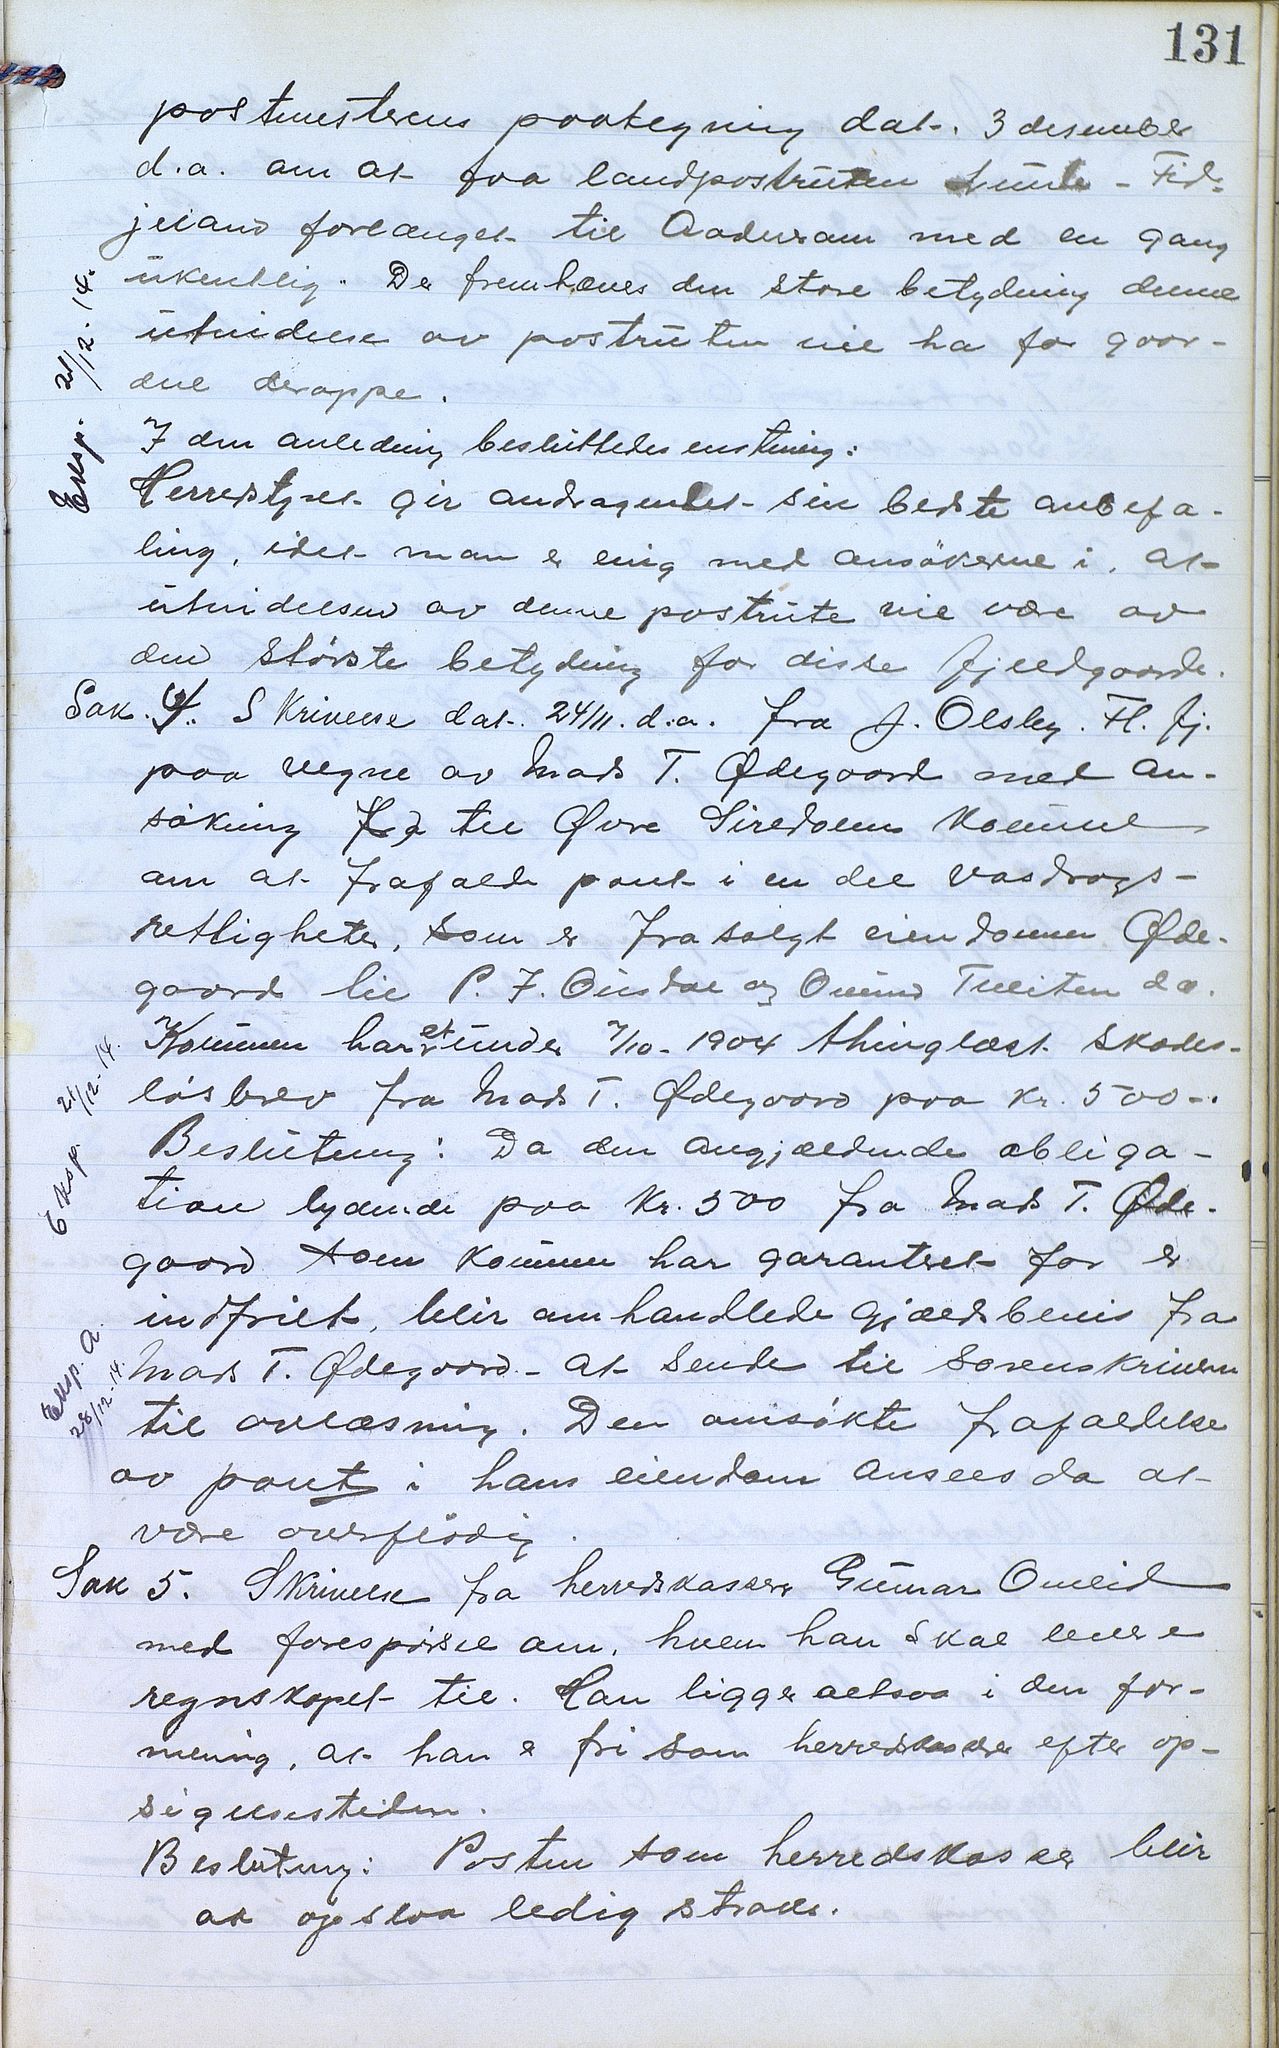 131
postmesterens paategning dat. 3 desember
d.a. om at faa landpostruten Lunde - Fid-
jeland forlænget til Aadneram med en gang
ukentlig. De fremhæves den store betydning denne
utvidelse av postruten vil ha for gaar-
dene deroppe.
Eksp. 21/12. 14.
I den anledning besluttedes enstemig:
Herredstyret gir andragendet sin bedste anbefa-
ling, idet man er enig med ansökerne i, at
utvidelsen av denne postrute vil være av
den störste betydning for disse fjeldgaarde.
Sak. 4. Skrivelse dat. 24/11. d.a. fra J. Olsby. Fl. fj.
paa vegne av Mads T. Ødegaard med an-
sökning til Øvre Siredalens Kommune
om at frafalde pant i en del vasdrags-
rettigheter, som er frasolgt eiendommen Øde-
gaard til P. J. Ousdal og Ouind Tveiten da.
Kommunen har et under 7/10-1904 thinglæst skades-
lösbrev fra Mads T. Ødegaard paa kr. 500-.
Eksp. 21/12. 14.
Beslutning: Da den angjældende obliga-
tion lydende paa Kr. 500 fra Mads T. Øde-
gaard som Kommunen har garantert for er
indfriet, blir omhandlede gjældsbevis fra
Mads T. Ødegaard - at sende til Sorenskriveren
til avlæsning. Den omsökte frafaldelse
Eksp. a. 28/12-14.
av pant i hans eiendom ansees da at
være overflödig.
Sak 5. Skrivelse fra herredskasserer Gunnar Omlid
med forespörsel om, hvem han skal levere
regnskapet til. Han ligger altsaa i den for-
mening, at han er fri som herredskasserer efter op-
sigelsestiden.
Beslutning: Posten som herredskasserer blir
at opslaa ledig straks.